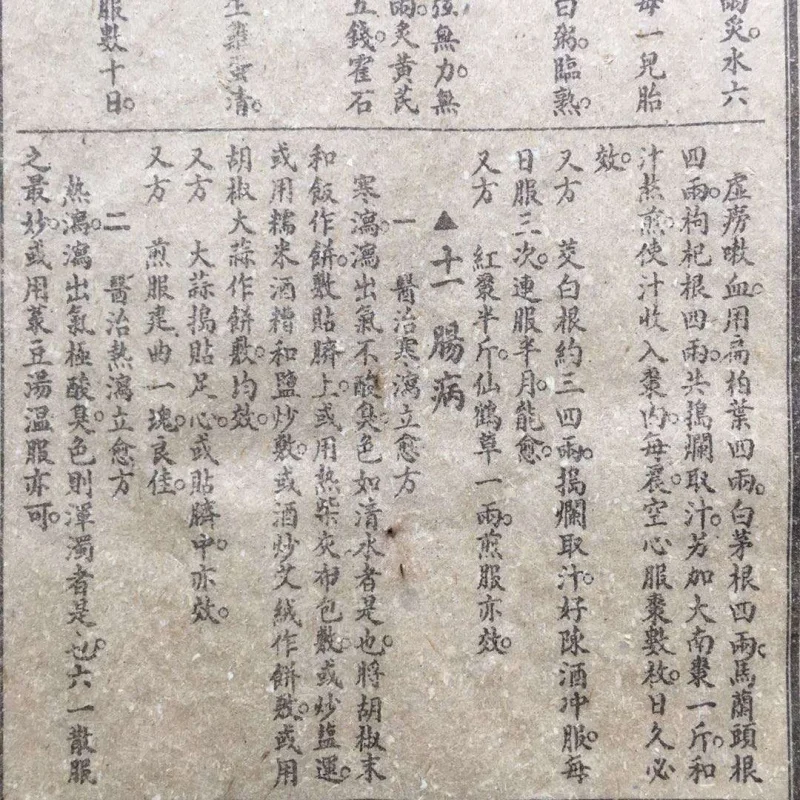 兩炙水六
每一兒胎
白粥。臨熟。
弦無力。無
兩炙黃芪
五錢霍石
生雞蛋清。
服數十日。
虛癆嗽血。用扁柏葉四兩。白茅根四兩。馬蘭頭根
四兩。枸杞根四兩。共搗爛取汁。另加大南棗一斤。和
汁熬煎。使汁收入棗內。每晨空心服棗數枚。日久必
效。
又方 茭白根約三四兩。搗爛取汁。好陳酒冲服。每
日服三次。連服半月。能愈。
又方 紅棗半斤。仙鶴草一兩。煎服亦效。
▲十一 腸病
一 醫治寒瀉立愈方
寒瀉。瀉出氣不酸臭。色如清水者是也。將胡椒末
和飯作餅。敷貼臍上。或用熱柴灰布包敷。或炒鹽運。
或用糯米酒糟和鹽炒敷。或酒炒艾絨作餅敷。或用
胡椒大蒜作餅敷。均效。
又方 大蒜搗貼足心。或貼臍中。亦效。
又方 煎服建曲一塊。良佳。
二 醫治熱瀉立愈方
熱瀉。瀉出氣極酸臭。色則渾濁者是也。六一散服
之最妙。或用菉豆湯溫服亦可。